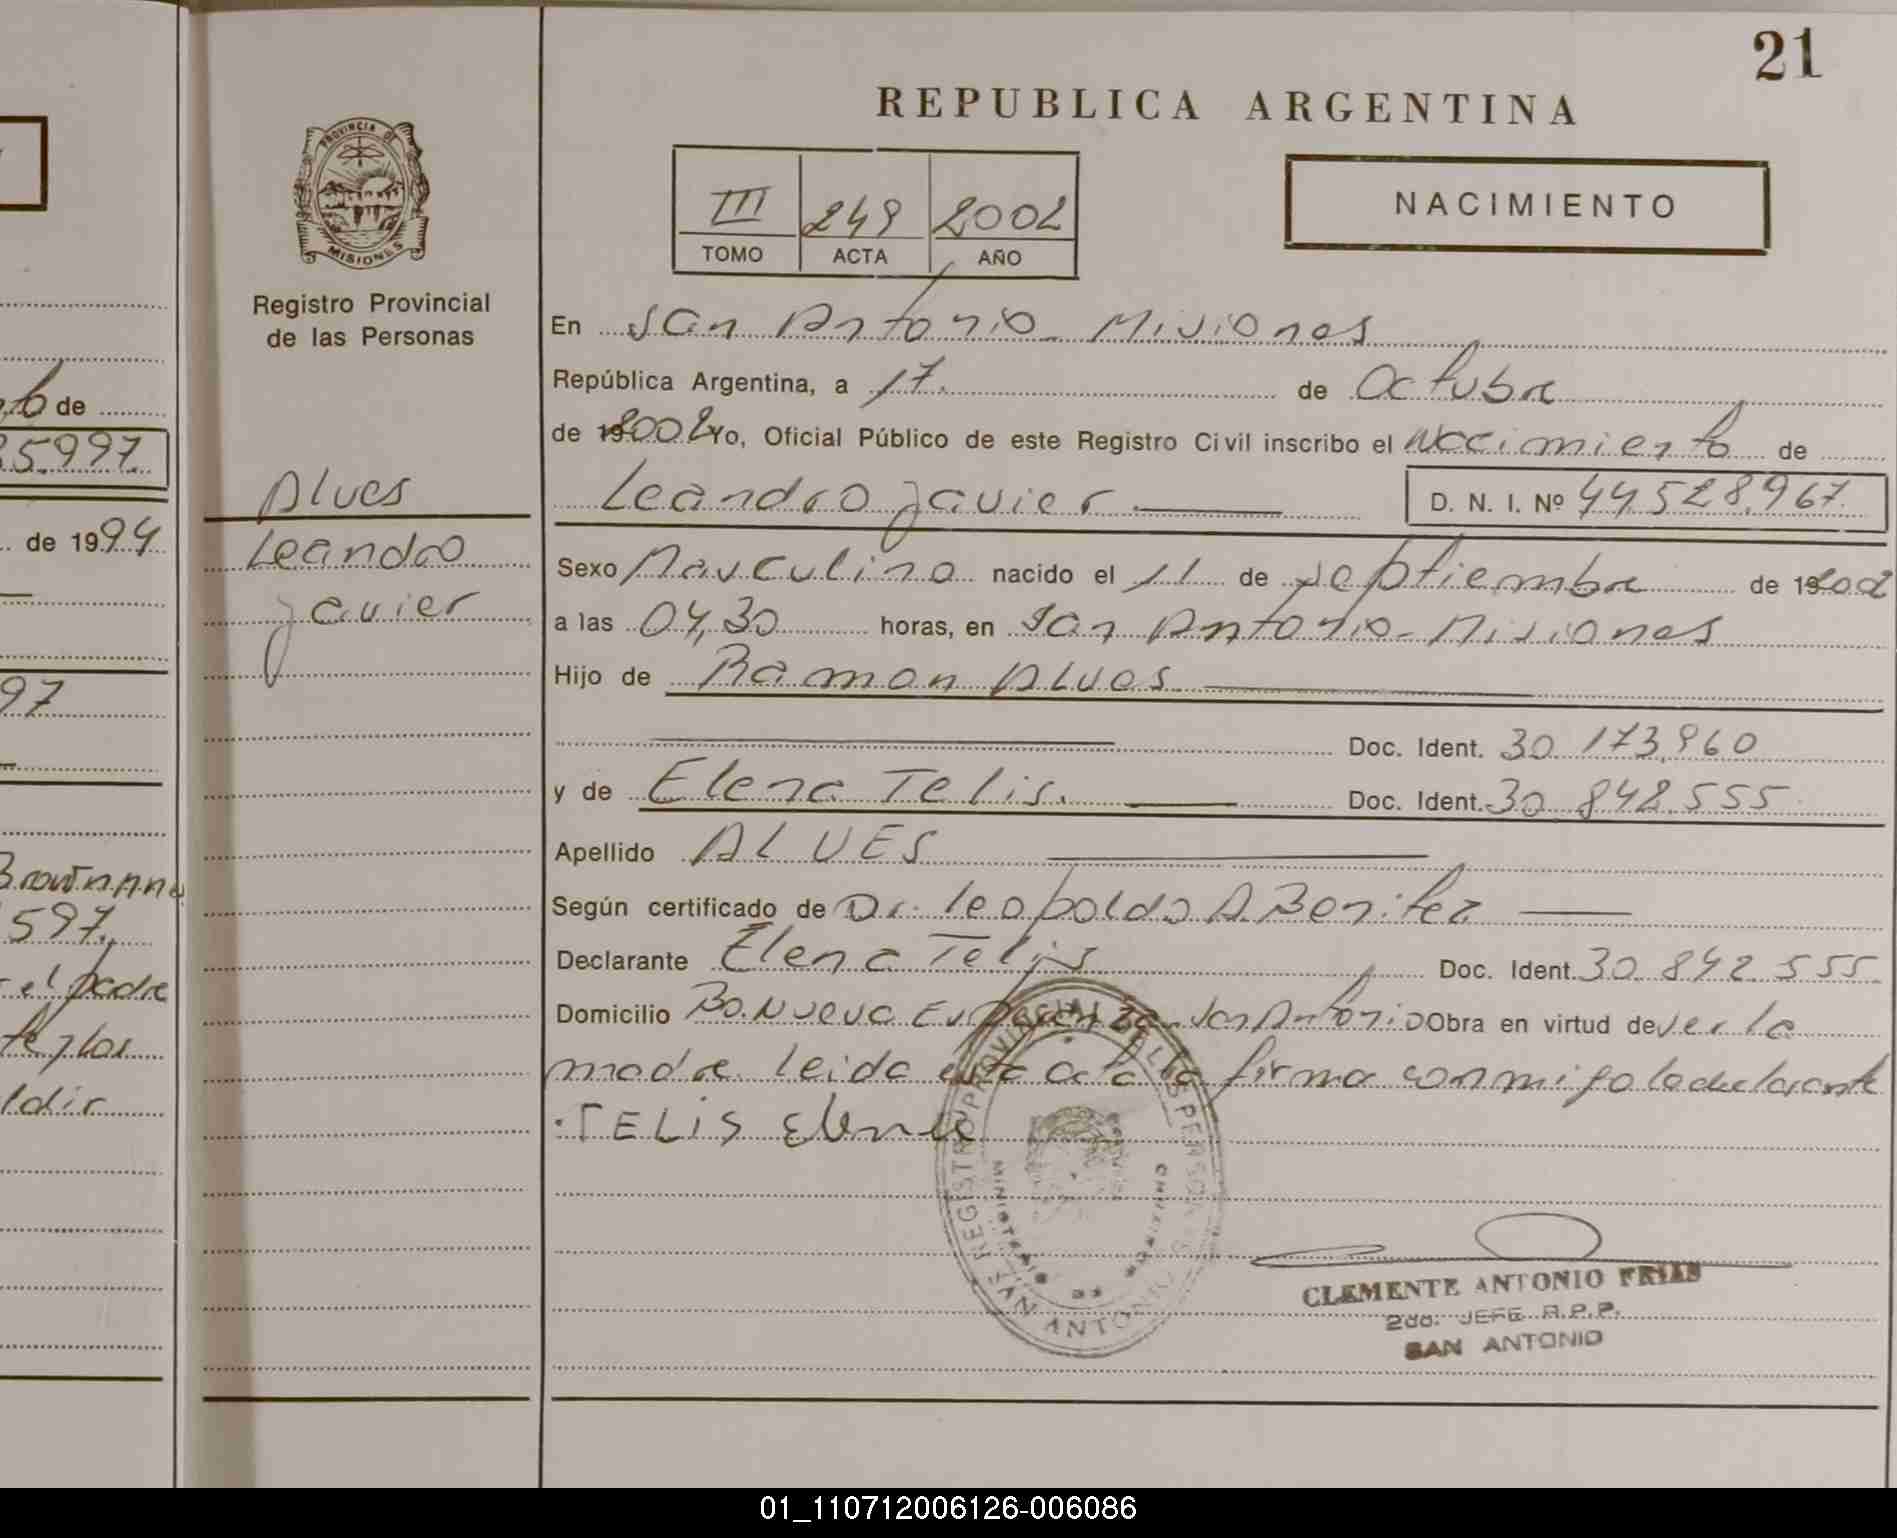 21
REPUBLICA ARGENTINA
PROVINCIA DE
MISIONES
Registro Provincial
de las Personas
III 249 2002
TOMO ACTA AÑO
NACIMIENTO
En San Antonio - Misiones
República Argentina, a 17. de Octubre
de 192002 Yo, Oficial Público de este Registro Civil inscribo el nacimiento de
Leandro Javier
D. N. I. Nº 44.528.967.
Alves
Leandro
Javier
Sexo Masculino nacido el 11 de septiembre de 192002
a las 04,30 horas, en San Antonio - Misiones
Hijo de Ramon Alves
Doc. Ident. 30.173.960
y de Elena Telis. Doc. Ident. 30.842.555
Apellido ALVES
Según certificado de Dr. Leopoldo A. Benitez
Declarante Elena Telis Doc. Ident. 30.842.555
Domicilio Bo. Nueva Esperanza - San Antonio Obra en virtud de ser la
madre leida esta acta la firma conmigo la declarante
TELIS Elena
REGISTRO PROVINCIAL DE LAS PERSONAS
MINISTERIO DE GOBIERNO
SAN ANTONIO
CLEMENTE ANTONIO FRIAS
2do. JEFE R.P.P.
SAN ANTONIO
de
5.997.
de 1994
97
597.
el padre
01_110712006126-006086